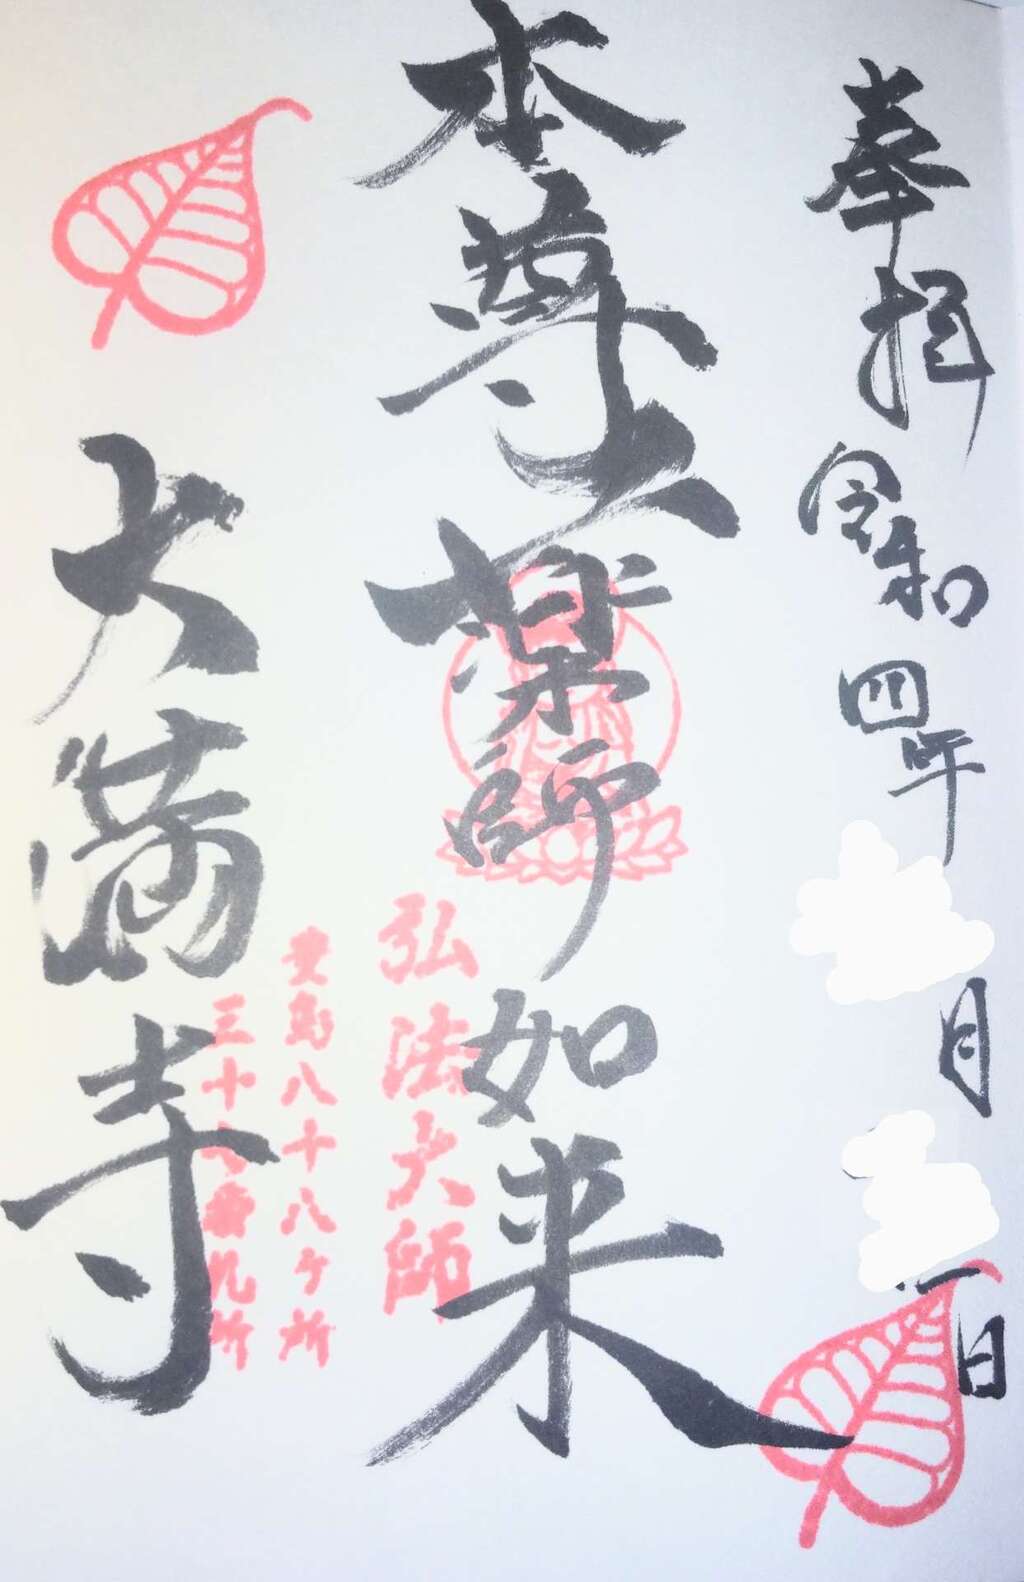 奉拝 令和四年 月 日
本尊 薬師如来
弘法大師
八十八ヶ所
三十八番札所
大満寺